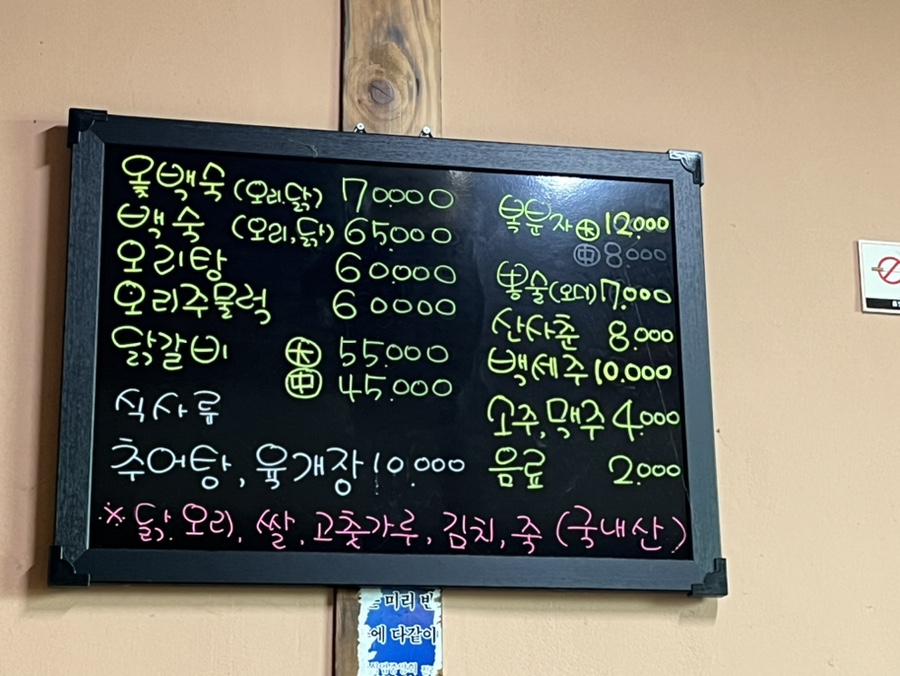 옻백숙 (오리.닭) 70000
백숙 (오리,닭) 65000
오리탕 60000
오리주물럭 60000
닭갈비 大 55.000
中 45.000
식사류
추어탕, 육개장 10.000
복분자 大 12.000
中 8.000
뽕술(오디) 7.000
산사춘 8.000
백세주 10.000
소주, 맥주 4.000
음료 2.000
※ 닭. 오리, 쌀, 고춧가루, 김치, 죽 (국내산)
미리 빈
에 다같이